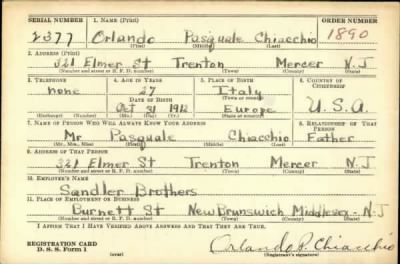 SERIAL NUMBER 1. NAME (Print) ORDER NUMBER
2377 Orlando Pasquale Chiacchio 1890
(First) (Middle) (Last)
2. ADDRESS (Print)
321 Elmer St Trenton Mercer N.J
(Number and street or R. F. D. number) (Town) (County) (State)
3. TELEPHONE 4. AGE IN YEARS 5. PLACE OF BIRTH 6. COUNTRY OF CITIZENSHIP
none 27 Italy
DATE OF BIRTH (Town or county)
Oct 31 1912 Europe U.S.A
(Mo.) (Day) (Yr.) (State or country)
7. NAME OF PERSON WHO WILL ALWAYS KNOW YOUR ADDRESS 8. RELATIONSHIP OF THAT PERSON
Mr Pasquale Chiacchio Father
(Mr., Mrs., Miss) (First) (Middle) (Last)
9. ADDRESS OF THAT PERSON
321 Elmer St Trenton Mercer N.J
(Number and street or R. F. D. number) (Town) (County) (State)
10. EMPLOYER'S NAME
Sandler Brothers
11. PLACE OF EMPLOYMENT OR BUSINESS
Burnett St New Brunswich Middlesex - N.J
(Number and street or R. F. D. number) (Town) (County) (State)
I AFFIRM THAT I HAVE VERIFIED ABOVE ANSWERS AND THAT THEY ARE TRUE.
REGISTRATION CARD
D. S. S. Form 1 (over) Orlando P. Chiacchio
(Registrant's signature)